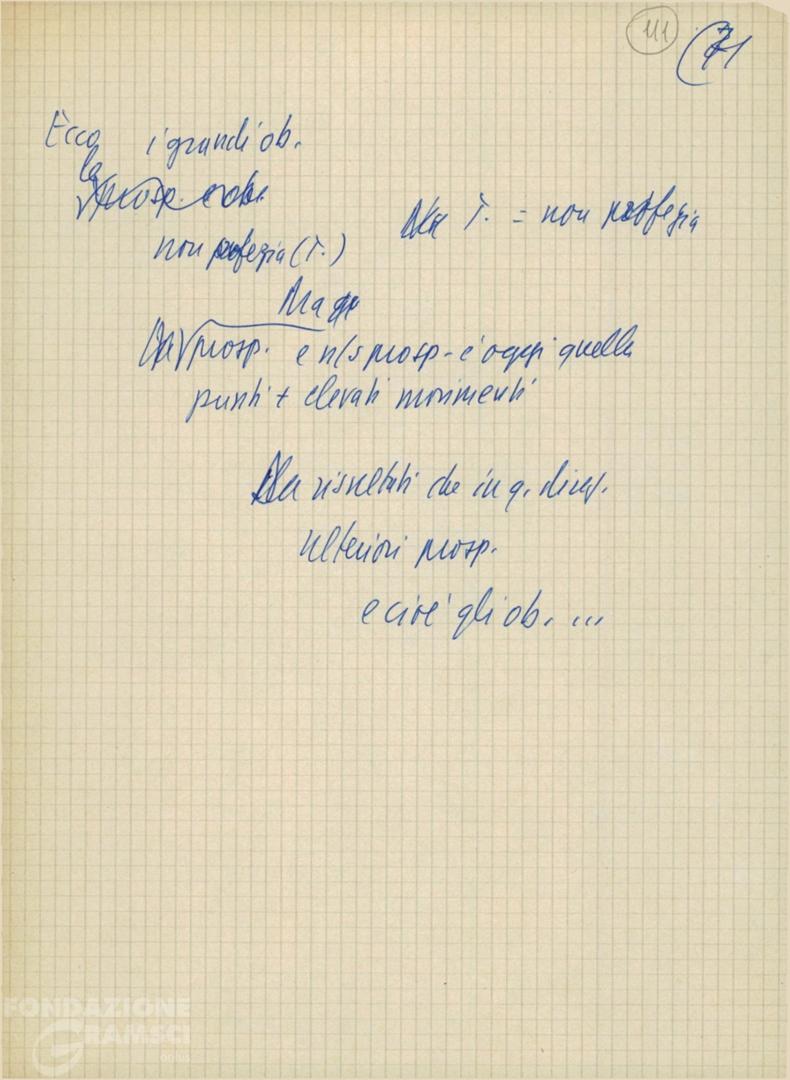 111
71
Ecco i grandi ob.
la prosp.
Ma T. = non
non (T.)
Ma
prosp. e n/s prosp - è oggi quella
punti + elevati movimenti
risultati che in q. direz.
ulteriori prosp.
e cioè gli ob. ...
FONDAZIONE
GRAMSCI
ONLUS